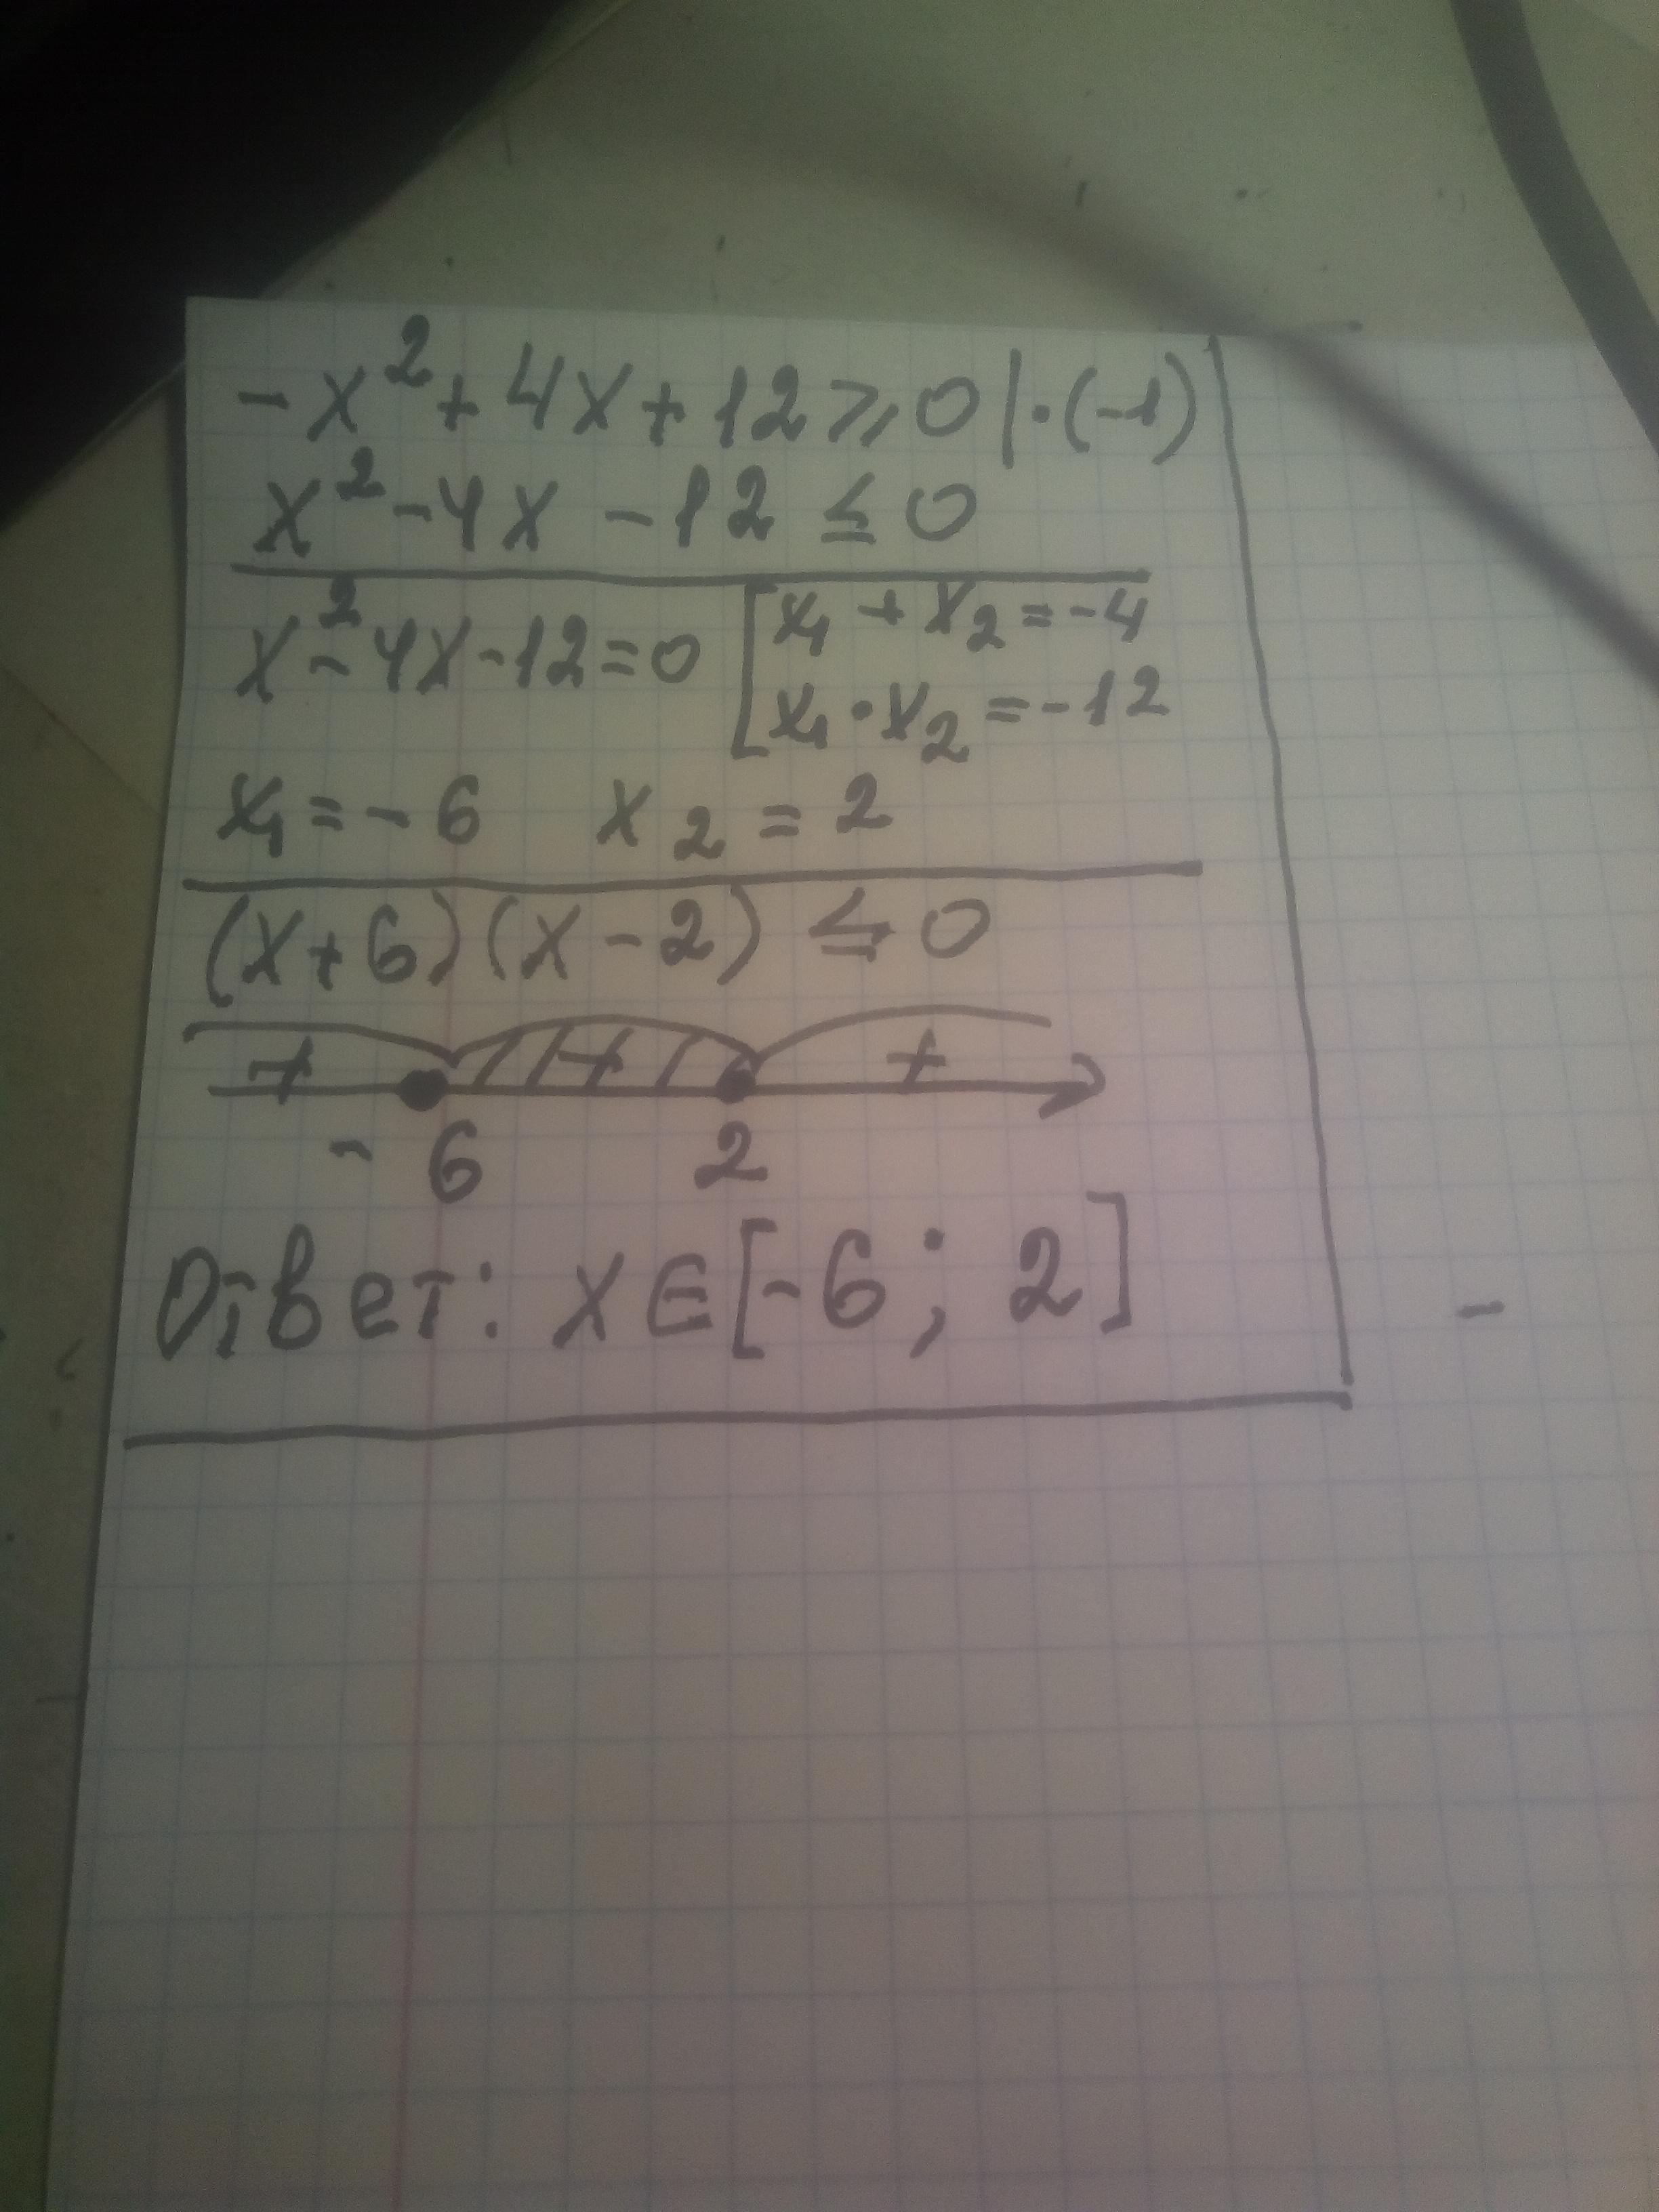 -x²+4x+12⩾0|·(-1)
x²-4x-12≤0
x²-4x-12=0 [x₁+x₂=-4
x₁·x₂=-12
x₁=-6 x₂=2
(x+6)(x-2)≤0
+ + +
-6 2
Ответ: x∈[-6; 2]